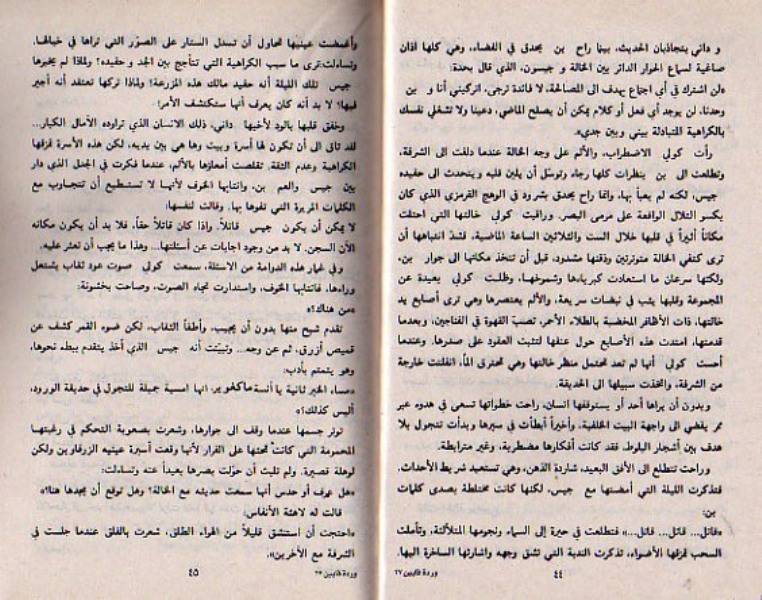 و داني يتجاذبان الحديث، بينما راح بن يحدق في الفضاء، وهي كلها اذان
صاغية لسماع الحوار الدائر بين الخالة و جيسون، الذي قال بحدة:
«لن اشترك في أي اجتماع يهدف الى المصالحة، لا فائدة ترجى، اتركيني أنا و بن
وحدنا، لن يوجد أي فعل أو كلام يمكن أن يصلح الماضي، دعينا ولا تشغلي نفسك
بالكراهية المتبادلة بيني وبين جدي».
رأت كولي الاضطراب، والألم على وجه الخالة عندما دلفت الى الشرفة،
وتطلعت الى بن بنظرات كلها رجاء وتوسل أن يلين قلبه ويتحدث الى حفيده
جيس، لكنه لم يعبأ بها، وانما راح يحدق بشرود في الوهج القرمزي الذي كان
يكسو التلال الواقعة على مرمى البصر. وراقبت كولي خالتها التي احتلت
مكاناً أثيراً في قلبها خلال الست والثلاثين الساعة الماضية، فشد انتباهها أن
ترى كتفي الخالة متوترتين وذقنها مشدود، قبل أن تتخذ مكانها الى جوار بن،
ولكنها سرعان ما استعادت كبرياءها وشموخها، وظلت كولي بعيدة عن
المجموعة وقلبها يثب في نبضات سريعة، والألم يعتصرها وهي ترى أصابع يد
خالتها، ذات الأظافر المخضبة بالطلاء الأحمر، تصب القهوة في الفناجين، وبعدما
قدمتها، امتدت هذه الأصابع حول عنقها لتثبت العقود على صدرها. وعندما
أحست كولي أنها لم تعد تحتمل منظر خالتها وهي تحترق ألماً، انفلتت خارجة
من الشرفة، واتخذت سبيلها الى الحديقة.
وبدون أن يراها أحد أو يستوقفها انسان، راحت خطواتها تسعى في هدوء عبر
ممر يفضي الى واجهة البيت الخلفية. وأخيراً أبطأت في سيرها وبدأت تتجول بلا
هدف بين أشجار البلوط، فقد كانت أفكارها مضطربة، وغير مترابطة.
وراحت تتطلع الى الأفق البعيد، شاردة الذهن، وهي تستعيد شريط الأحداث.
فتذكرت الليلة التي أمضتها مع جيس، لكنها كانت مختلطة بصدى كلمات
بن:
«قاتل... قاتل... قاتل...» فتطلعت في حيرة إلى السماء ونجومها المتلألئة، وتأملت
السحب تمزقها الأضواء، تذكرت الندبة التي تشق وجهه واشارتها الساخرة اليها.
٤٤
وردة قايين ٢٧
وأغمضت عينيها تحاول أن تسدل الستار على الصور التي تراها في خيالها،
وتساءلت:ترى ما سبب الكراهية التي تتأجج بين الجد و حفيده؟ ولماذا لم يخبرها
جيس تلك الليلة أنه حفيد مالك هذه المزرعة؟ ولماذا تركها تعتقد أنه أجير
فيها؟ لا بد أنه كان يعرف أنها ستكتشف الأمر!
وخفق قلبها بالود لأخيها داني، ذلك الانسان الذي تراوده الآمال الكبار...
لقد تاق الى أن تكون لها أسرة وبيت وها هي بين يديه، لكن هذه الأسرة تمزقها
الكراهية وعدم الثقة. تقلصت أمعاؤها بالألم، عندما فكرت في الجدل الذي دار
بين جيس والعم بن، وانتابها الخوف لأنها لا تستطيع أن تتجاوب مع
الكلمات المريرة التي تفوها بها. وقالت لنفسها:
لا يمكن أن يكون جيس قاتلاً. واذا كان قاتلاً حقاً، فلا بد أن يكون مكانه
الآن السجن. لا بد من وجود اجابات عن أسئلتها... وهذا ما يجب أن تعثر عليه.
وفي غمار هذه الدوامة من الاسئلة، سمعت كولي صوت عود ثقاب يشتعل
وراءها، فانتابها الخوف، واستدارت تجاه الصوت، وصاحت بخشونة:
«من هناك؟»
تقدم شبح منها بدون أن يجيب، وأطفأ الثقاب، لكن ضوء القمر كشف عن
قميص أزرق، ثم عن وجه... وتبينت أنه جيس الذي أخذ يتقدم ببطء نحوها،
وهو يتمتم بأدب:
«مساء الخير ثانية يا آنسة ماكغوير، انها امسية جميلة للتجول في حديقة الورود،
أليس كذلك؟»
توتر جسمها عندما وقف الى جوارها، وشعرت بصعوبة التحكم في رغبتها
المحمومة التي كانت تحثها على الفرار لأنها وقعت أسيرة عينيه الزرقاوين ولكن
لوهلة قصيرة. ولم تلبث أن حولت بصرها بعيداً عنه وتساءلت:
«هل عرف أو حدس أنها سمعت حديثه مع الخالة؟ وهل توقع أن يجدها هنا؟»
قالت له لاهثة الأنفاس:
«احتجت أن استنشق قليلاً من الهواء الطلق، شعرت بالقلق عندما جلست في
الشرفة مع الآخرين».
٤٥
وردة قايين ٢٥